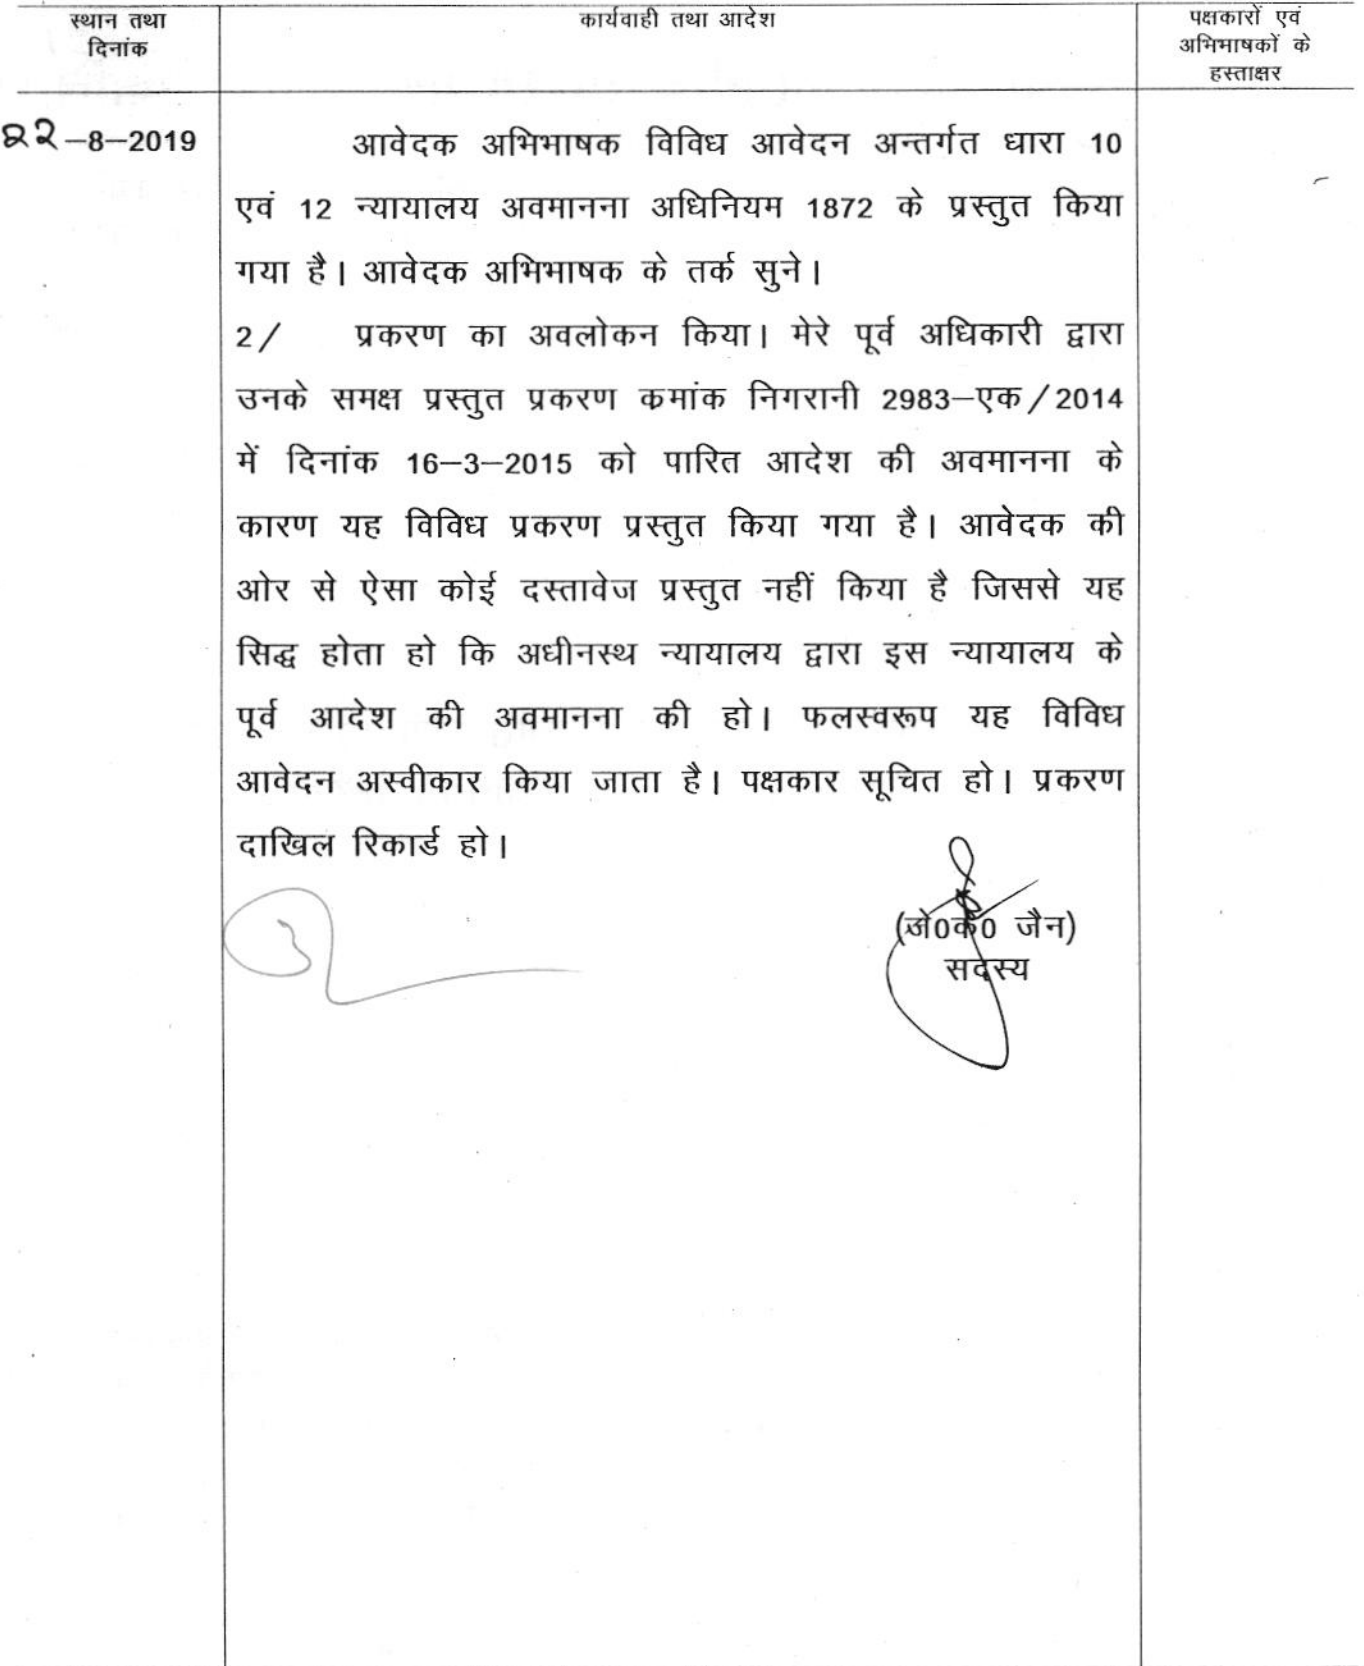 स्थान तथा
दिनांक
कार्यवाही तथा आदेश
पक्षकारों एवं
अभिभाषकों के
हस्ताक्षर
२२–8–2019
आवेदक अभिभाषक विविध आवेदन अन्तर्गत धारा 10
एवं 12 न्यायालय अवमानना अधिनियम 1872 के प्रस्तुत किया
गया है। आवेदक अभिभाषक के तर्क सुने।
2/ प्रकरण का अवलोकन किया। मेरे पूर्व अधिकारी द्वारा
उनके समक्ष प्रस्तुत प्रकरण कमांक निगरानी 2983–एक/2014
में दिनांक 16–3–2015 को पारित आदेश की अवमानना के
कारण यह विविध प्रकरण प्रस्तुत किया गया है। आवेदक की
ओर से ऐसा कोई दस्तावेज प्रस्तुत नहीं किया है जिससे यह
सिद्ध होता हो कि अधीनस्थ न्यायालय द्वारा इस न्यायालय के
पूर्व आदेश की अवमानना की हो। फलस्वरूप यह विविध
आवेदन अस्वीकार किया जाता है। पक्षकार सूचित हो। प्रकरण
दाखिल रिकार्ड हो।
(जे0के0 जैन)
सदस्य